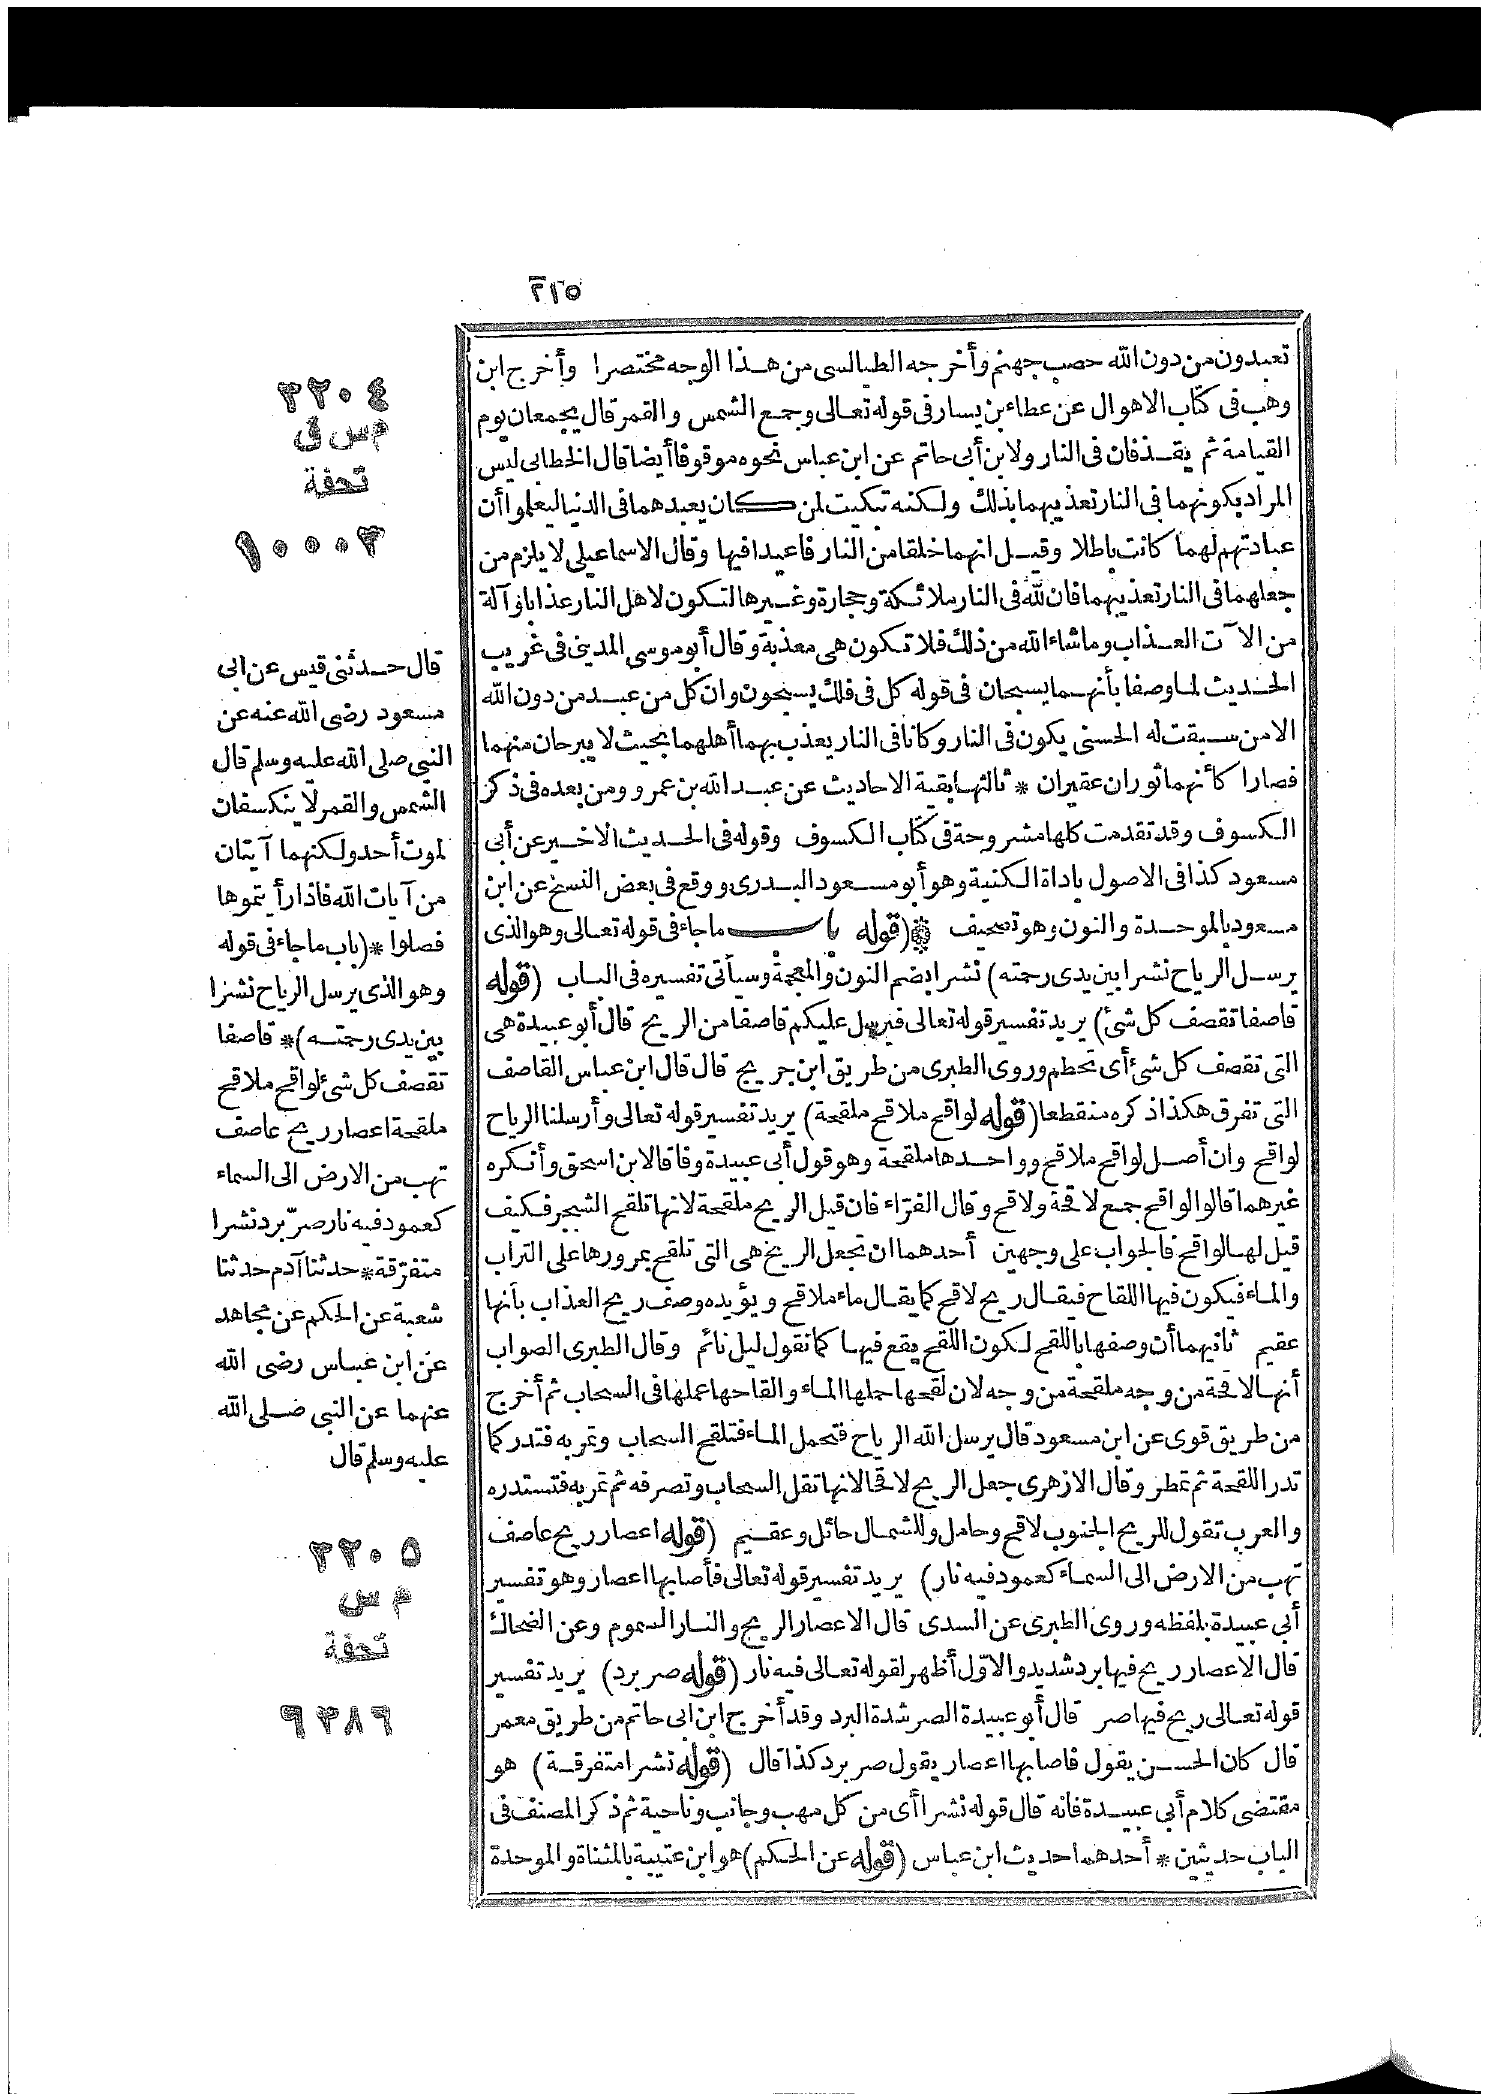 ٢١٥
تعبدون من دون الله حصب جهنم وأخرجه الطيالسى من هذا الوجه مختصرا وأخرج ابن
وهب فى كتاب الاهوال عن عطاء بن يسار فى قوله تعالى وجمع الشمس والقمر قال يجمعان يوم
القيامة ثم يقذفان فى النار ولابن أبى حاتم عن ابن عباس نحوه موقوفا أيضا قال الخطابى ليس
المراد بكونهما فى النار تعذيبهما بذلك ولكنه تبكيت لمن كان يعبدهما فى الدنيا ليعلموا أن
عبادتهم لهما كانت باطلا وقيل انهما خلقا من النار فاعيدا فيها وقال الاسماعيلى لا يلزم من
جعلهما فى النار تعذيبهما فان لله فى النار ملائكة وحجارة وغيرها لتكون لاهل النار عذابا وآلة
من الآت العذاب وما شاء الله من ذلك فلا تكون هى معذبة وقال أبو موسى المدينى فى غريب
الحديث لما وصفا بأنهما يسبحان فى قوله كل فى فلك يسبحون وان كل من عبد من دون الله
الا من سبقت له الحسنى يكون فى النار وكانا فى النار يعذب بهما أهلهما بحيث لا يبرحان منهما
فصارا كأنهما ثوران عقيران * ثالثها بقية الاحاديث عن عبد الله بن عمرو ومن بعده فى ذكر
الكسوف وقد تقدمت كلها مشروحة فى كتاب الكسوف وقوله فى الحديث الاخير عن أبى
مسعود كذا فى الاصول باداة الكنية وهو أبو مسعود البدرى ووقع فى بعض النسخ عن ابن
مسعود بالموحدة والنون وهو تصحيف * (قوله باب ما جاء فى قوله تعالى وهو الذى
يرسل الرياح نشرا بين يدى رحمته) نشرا بضم النون والمعجمة وسيأتى تفسيره فى الباب (قوله
قاصفا تقصف كل شئ) يريد تفسير قوله تعالى فيرسل عليكم قاصفا من الريح قال أبو عبيدة هى
التى تقصف كل شئ أى تحطم وروى الطبرى من طريق ابن جريج قال قال ابن عباس القاصف
التى تفرق هكذا ذكره منقطعا (قوله لواقح ملاقح ملقحة) يريد تفسير قوله تعالى وأرسلنا الرياح
لواقح وان أصل لواقح ملاقح وواحدها ملقحة وهو قول أبى عبيدة وفاقا لابن اسحق وأنكره
غيرهما قالوا لواقح جمع لاقحة ولاقح وقال الفرّاء فان قيل الريح ملقحة لانها تلقح الشجر فكيف
قيل لها لواقح فالجواب على وجهين أحدهما ان تجعل الريح هى التى تلقح بمرورها على التراب
والماء فيكون فيها اللقاح فيقال ريح لاقح كما يقال ماء ملاقح ويؤيده وصف ريح العذاب بأنها
عقيم ثانيهما أن وصفها باللقح لكون اللقح يقع فيها كما تقول ليل نائم وقال الطبرى الصواب
أنها لاقحة من وجه ملقحة من وجه لان لقحها حملها الماء والقاحها عملها فى السحاب ثم أخرج
من طريق قوى عن ابن مسعود قال يرسل الله الرياح فتحمل الماء فتلقح السحاب وتمر به فتدر كما
تدر اللقحة ثم تمطر وقال الازهرى جعل الريح لاقحا لانها تقل السحاب وتصرفه ثم تمر به فتستدره
والعرب تقول للريح الجنوب لاقح وحامل وللشمال حائل وعقيم (قوله اعصار ريح عاصف
تهب من الارض الى السماء كعمود فيه نار) يريد تفسير قوله تعالى فأصابها اعصار وهو تفسير
أبى عبيدة بلفظه وروى الطبرى عن السدى قال الاعصار الريح والنار السموم وعن الضحاك
قال الاعصار ريح فيها برد شديد والاوّل أظهر لقوله تعالى فيه نار (قوله صر برد) يريد تفسير
قوله تعالى ريح فيها صر قال أبو عبيدة الصر شدة البرد وقد أخرج ابن ابى حاتم من طريق معمر
قال كان الحسن يقول فاصابها اعصار يقول صر برد كذا قال (قوله نشرا متفرقة) هو
مقتضى كلام أبى عبيدة فانه قال قوله نشرا أى من كل مهب وجانب وناحية ثم ذكر المصنف فى
الباب حديثين * أحدهما حديث ابن عباس (قوله عن الحكم) هو ابن عتيبة بالمثناة والموحدة
٣٢٠٤
م س ق
تحفة
١٠٠٠٣
قال حدثنى قيس عن ابى
مسعود رضى الله عنه عن
النبى صلى الله عليه وسلم قال
الشمس والقمر لا ينكسفان
لموت أحد ولكنهما آيتان
من آيات الله فاذا رأيتموها
فصلوا * (باب ما جاء فى قوله
وهو الذى يرسل الرياح نشرا
بين يدى رحمته) * قاصفا
تقصف كل شئ لواقح ملاقح
ملقحة اعصار ريح عاصف
تهب من الارض الى السماء
كعمود فيه نار صرّ برد نشرا
متفرّقة * حدثنا آدم حدثنا
شعبة عن الحكم عن مجاهد
عن ابن عباس رضى الله
عنهما عن النبى صلى الله
عليه وسلم قال
٣٢٠٥
م س
تحفة
٦٣٨٦